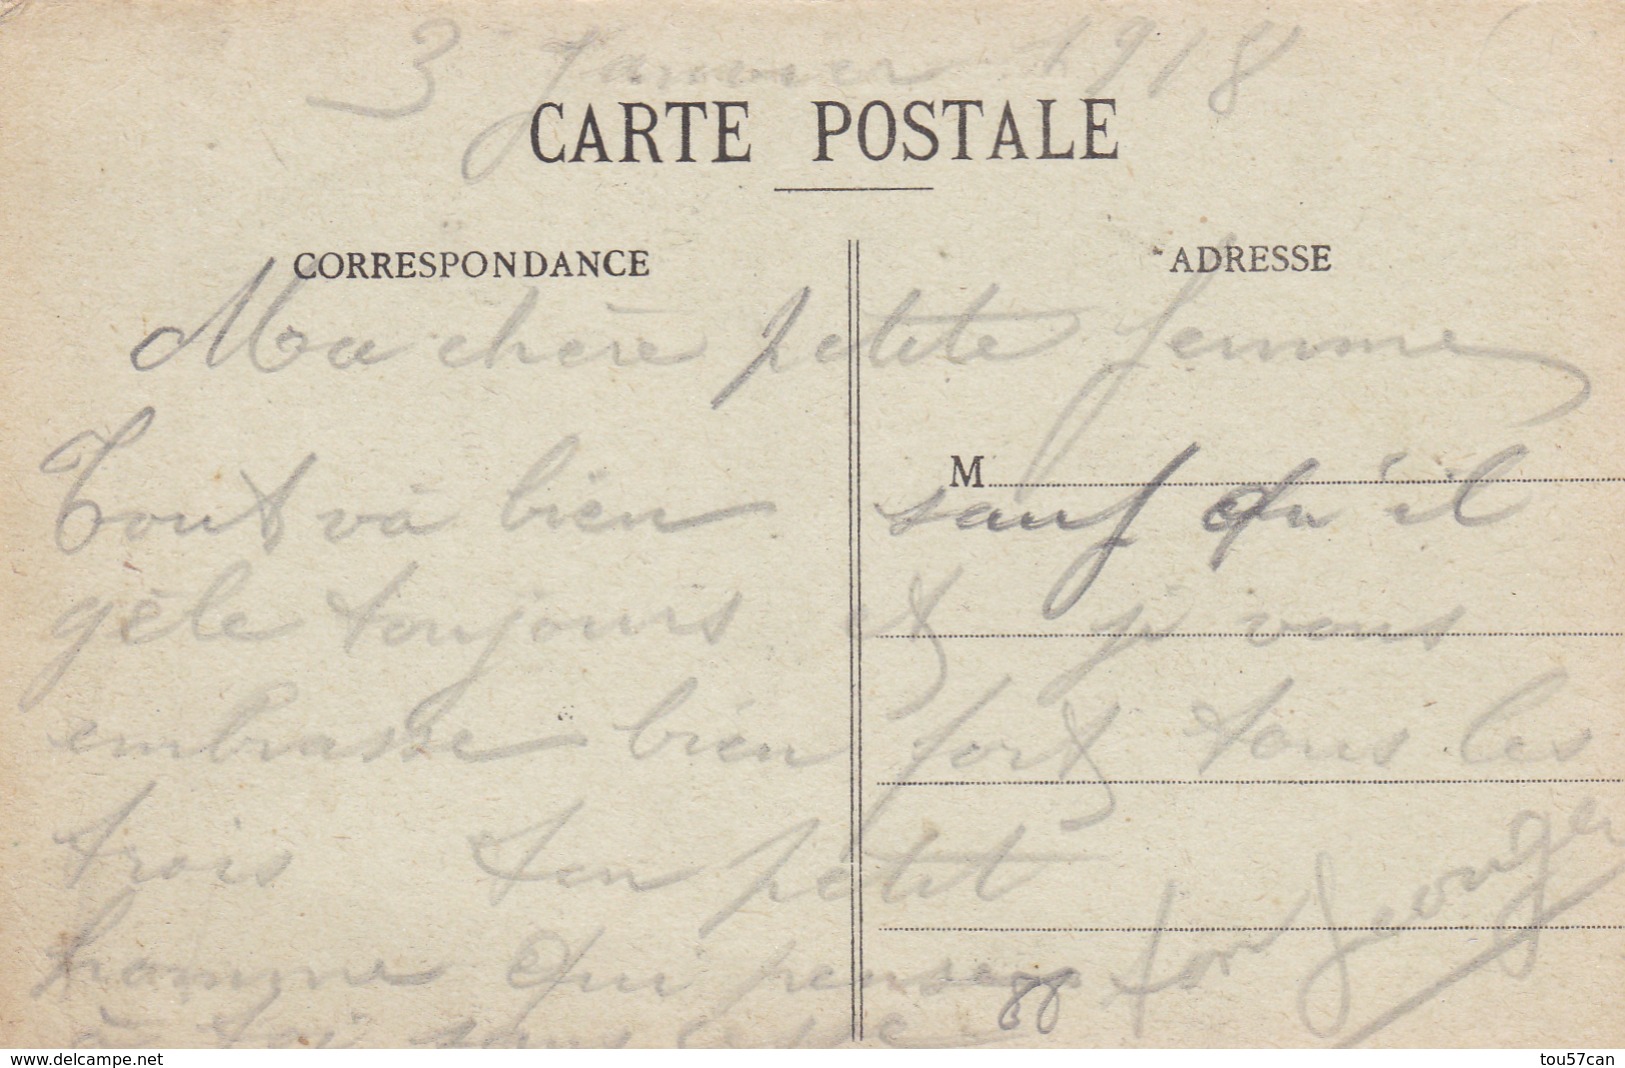 3 Janvier 1918
CARTE POSTALE
CORRESPONDANCE
ADRESSE
Ma chère petite femme
M
Tout và bien sauf qu'il
gèle toujours et je vous
embrasse bien fort tous les
trois ton petit
homme qui pense
à toi sans cesse
ton Georges
88
www.delcampe.net
tou57can